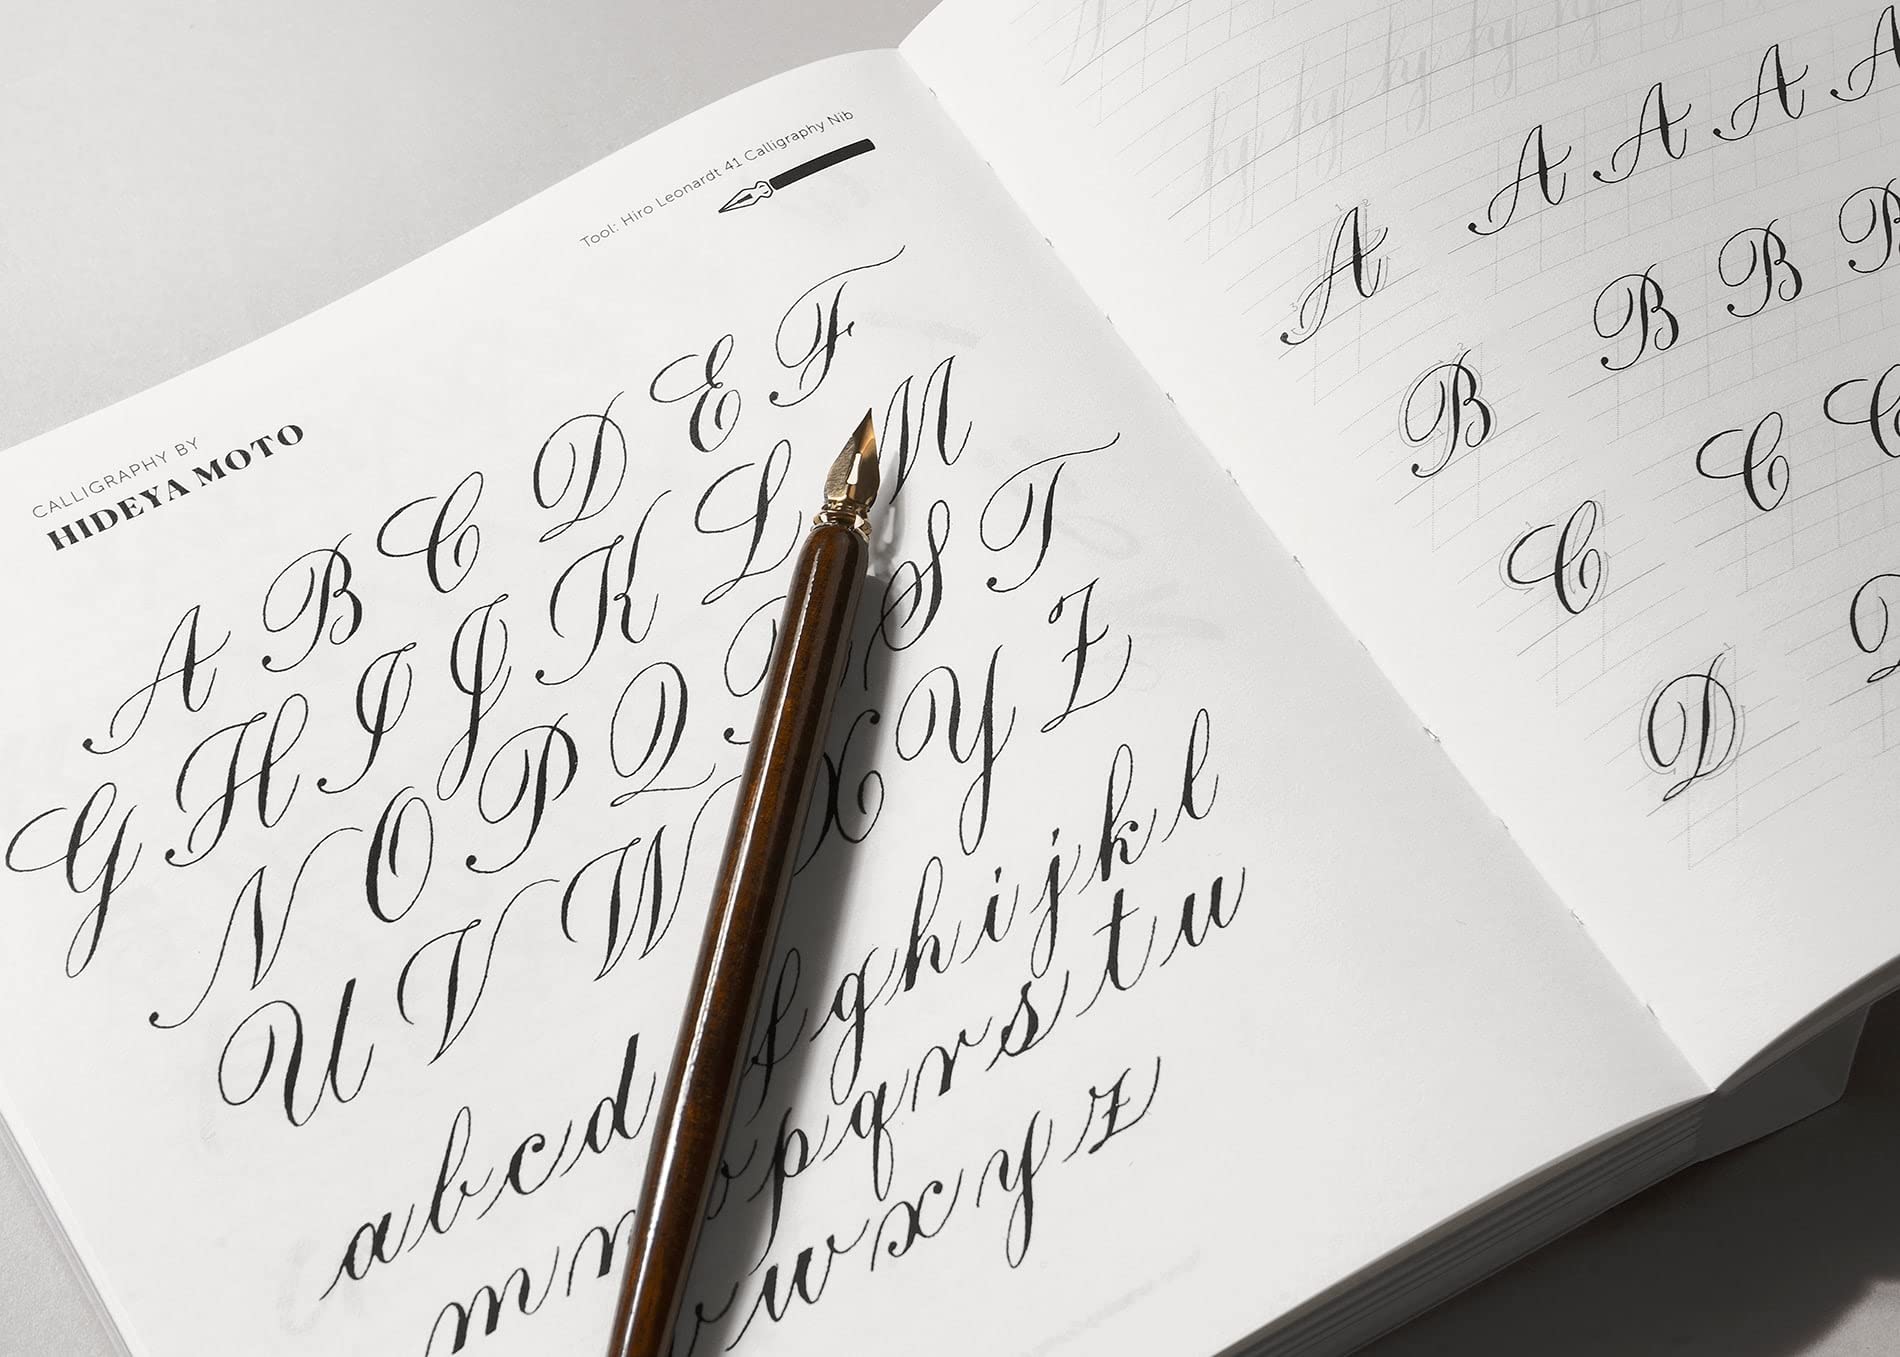 Tool: Hiro Leonardt 41 Calligraphy Nib
CALLIGRAPHY BY
HIDEYA MOTO
A B C D E F
G H I J K L M
N O P Q R S T
U V W X Y Z
a b c d f g h i j k l
m n o p q r s t u
v w x y z
A A A A A
B B B B
C C C
D D